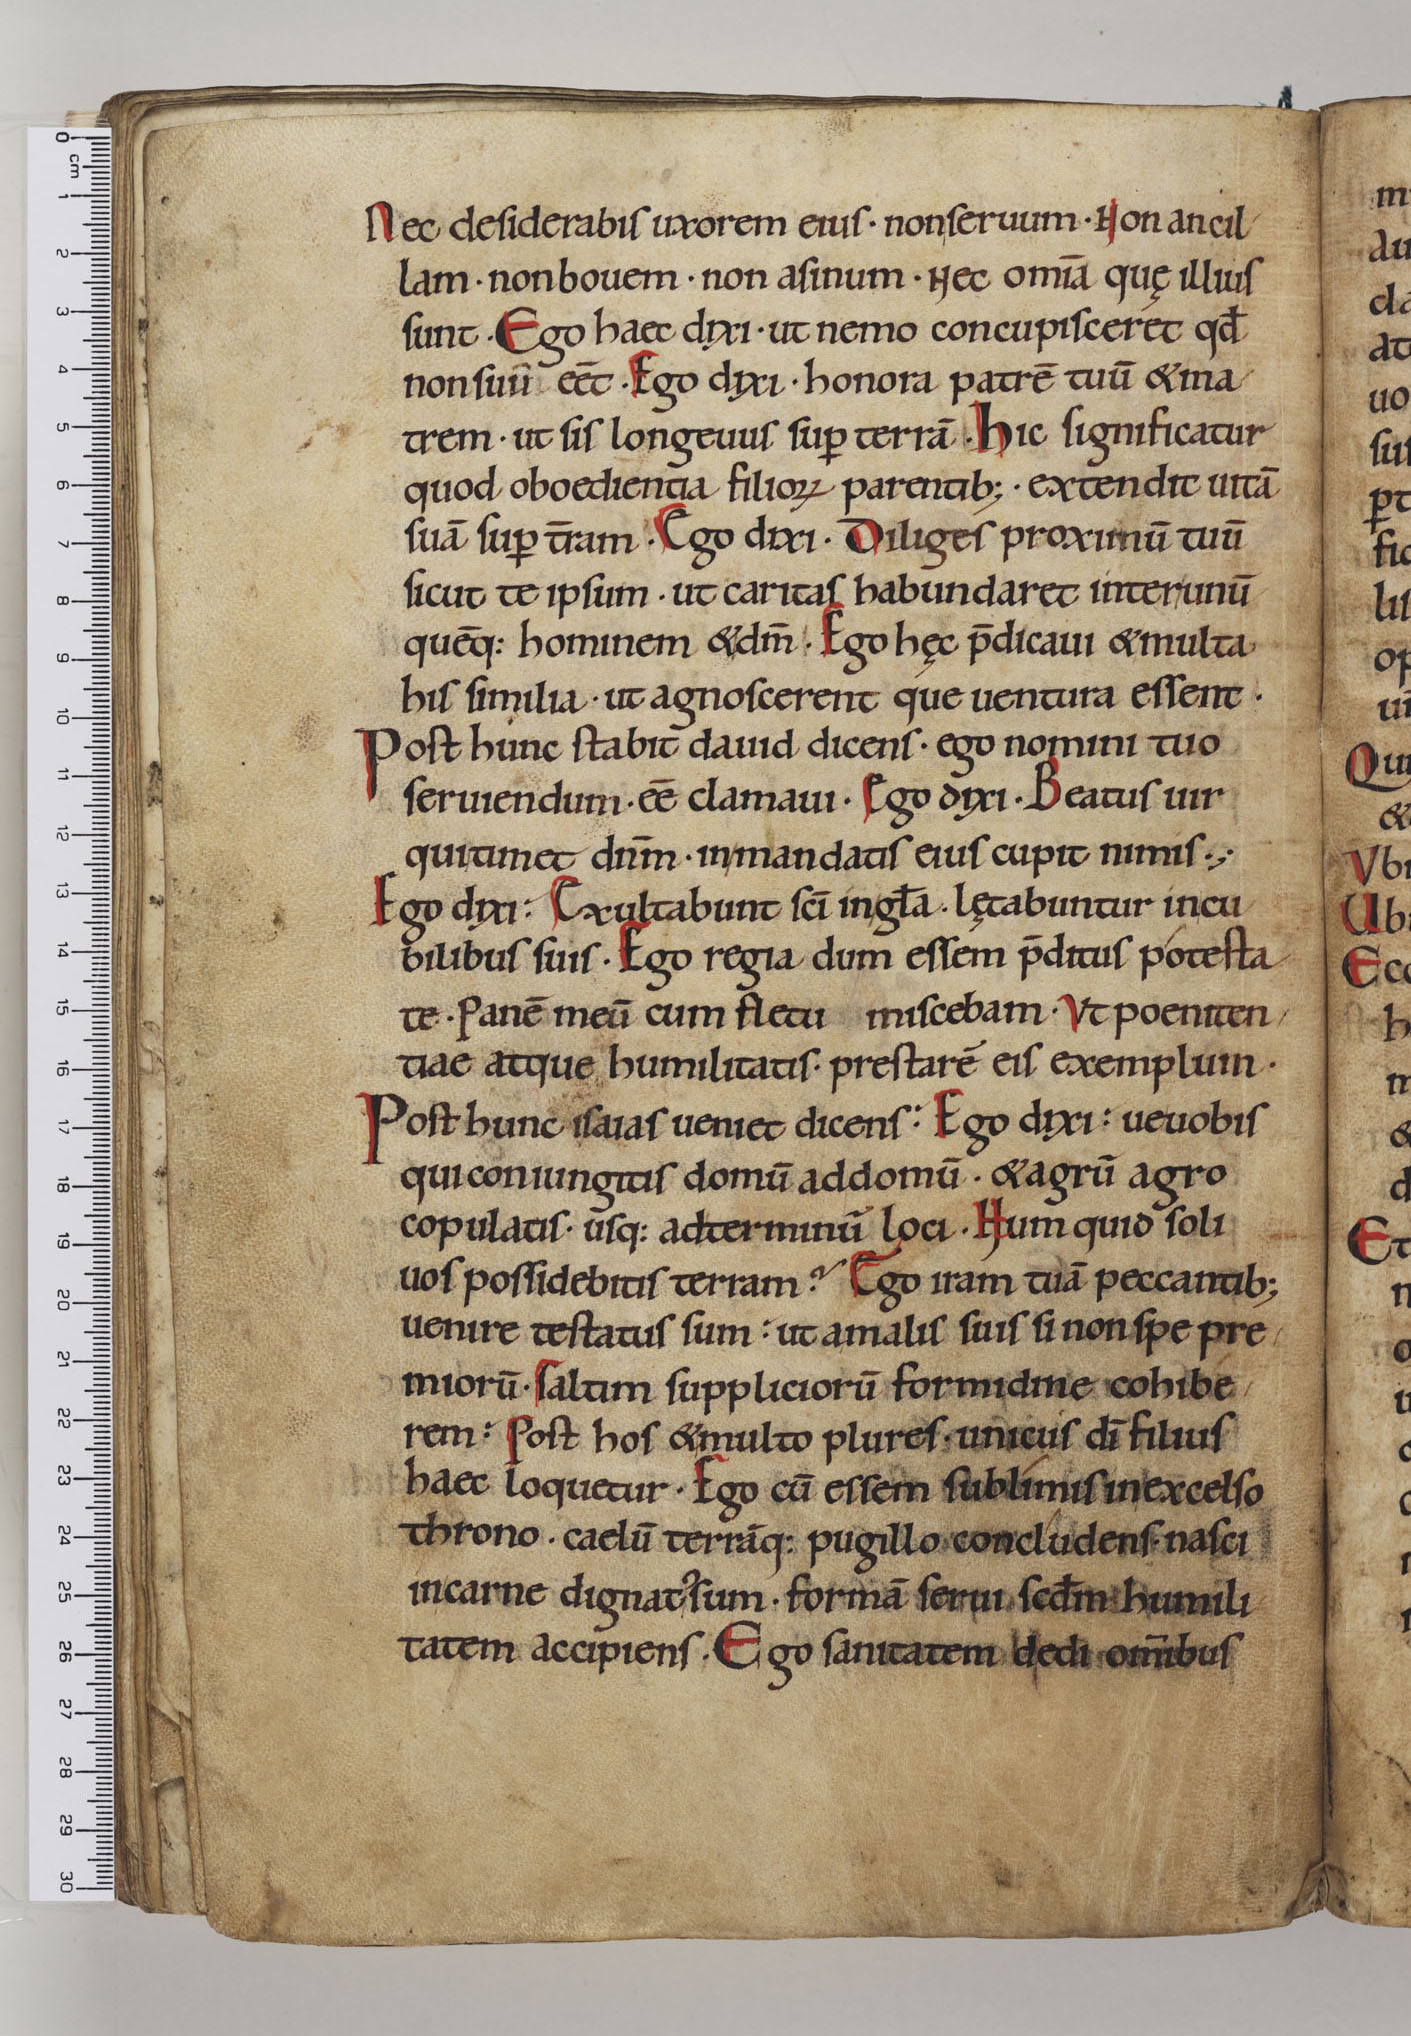 Nec desiderabis uxorem eius · non seruum · Non ancil
lam · non bouem · non asinum · Nec omīa quę illius
sunt · Ego haec dixi · ut nemo concupisceret qđ
non suū eēt · Ego dixi · honora patrē tuū & ma
trem · ut sis longeuus suꝑ terrā · Hic significatur
quod oboedientia filioꝝ parentib; · extendit uitā
suā suꝑ t̄ram · Ego dixi · Diliges proximū tuū
sicut te ipsum · ut caritas habundaret inter unū
quēq: hominem & dm̄ · Ego hęc p̄dicaui & multa
his similia · ut agnoscerent que uentura essent ·
Post hunc stabit dauid dicens · ego nomini tuo
seruiendum · eē clamaui · Ego dixi · Beatus uir
qui timet dnm̄ · in mandatis eius cupit nimis ·,·
Ego dixi : Exultabunt scī in gła · lętabuntur in cu
bilibus suis · Ego regia dum essem p̄ditus potesta
te · Panē meū cum fletu miscebam · Vt poeniten
tiae atque humilitatis · prestarē eis exemplum ·
Post hunc isaias ueniet dicens : Ego dixi : ue uobis
qui coniungitis domū ad domū · & agrū agro
copulatis · usq: ad terminū loci · Num quid soli
uos possidebitis terram ? Ego iram tuā peccantib;
uenire testatus sum : ut a malis suis si non spe pre
miorū · saltim suppliciorū formidine cohibe
rem : Post hos & multo plures · unicus dī filius
haec loquetur · Ego cū essem sublimis in excelso
throno · caelū terrāq: pugillo concludens · nasci
in carne dignat᾿ sum · formā serui scđm humili
tatem accipiens · Ego sanitatem dedi omībus